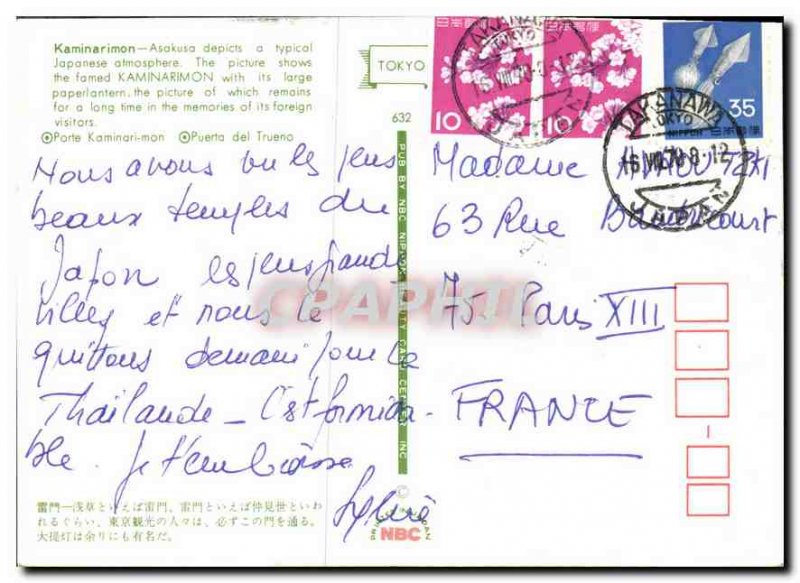 Kaminarimon—Asakusa depicts a typical
Japanese atmosphere. The picture shows
the famed KAMINARIMON with its large
paperlantern. the picture of which remains
for a long time in the memories of its foreign
visitors.
⊙Porte Kaminari-mon ⊙Puerta del Trueno
TOKYO
632
PUB BY NBC NIPPON BEAUTY CARD CENTER INC
Nous avons vu les plus
beaux temples du
Japon les plus grandes
villes et nous le
quittons demain pour la
Thaïlande_ C'est formida-
ble. Je t'embrasse
Sylvie
雷門—浅草といえば雷門、雷門といえば仲見世といわ
れるぐらい、東京観光の人々は、必ずこの門を通る。
大提灯は余りにも有名だ。
©
PRINTED IN JAPAN
NBC
日本郵便
10
日本郵便
10
35
NIPPON
日本郵便
TAKANAWA
TOKYO
JAPAN
TAKANAWA
TOKYO
8-12
JAPAN
Madame
63 Rue
75. Paris XIII
FRANCE
CPAPHIL